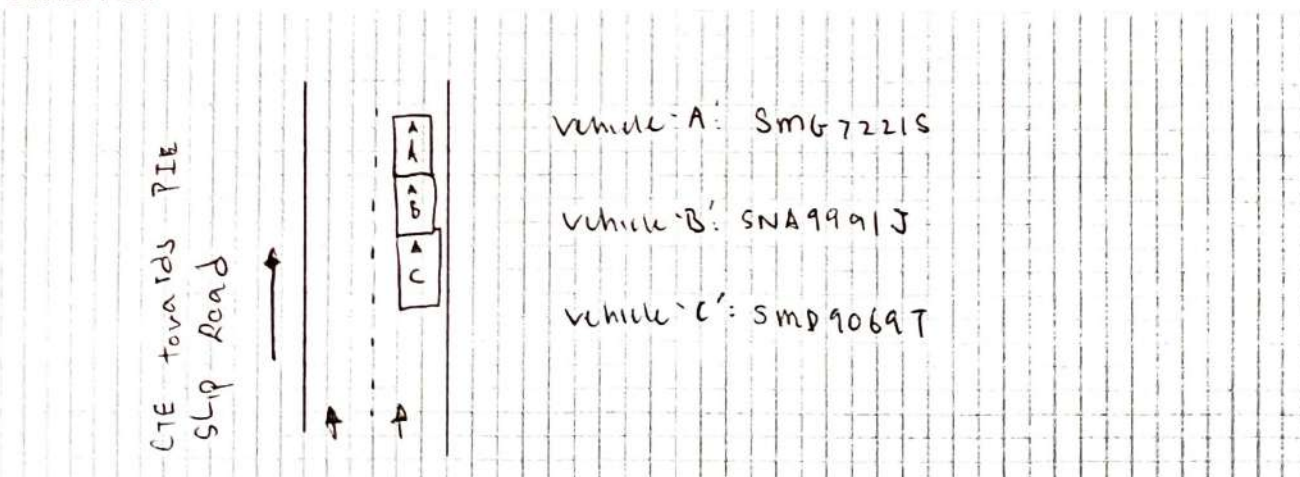 CTE towards PIE
Slip Road
A
B
C
Vehicle 'A': SMG7221S
Vehicle 'B': SNA9991J
Vehicle 'C': SMD9069T